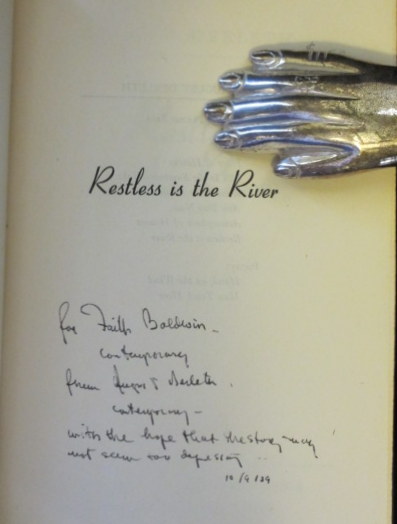 Restless is the River
for Faith Baldwin –
contemporary
from August Derleth.
contemporary –
with the hope that the story may
not seem too depressing
10/9/39